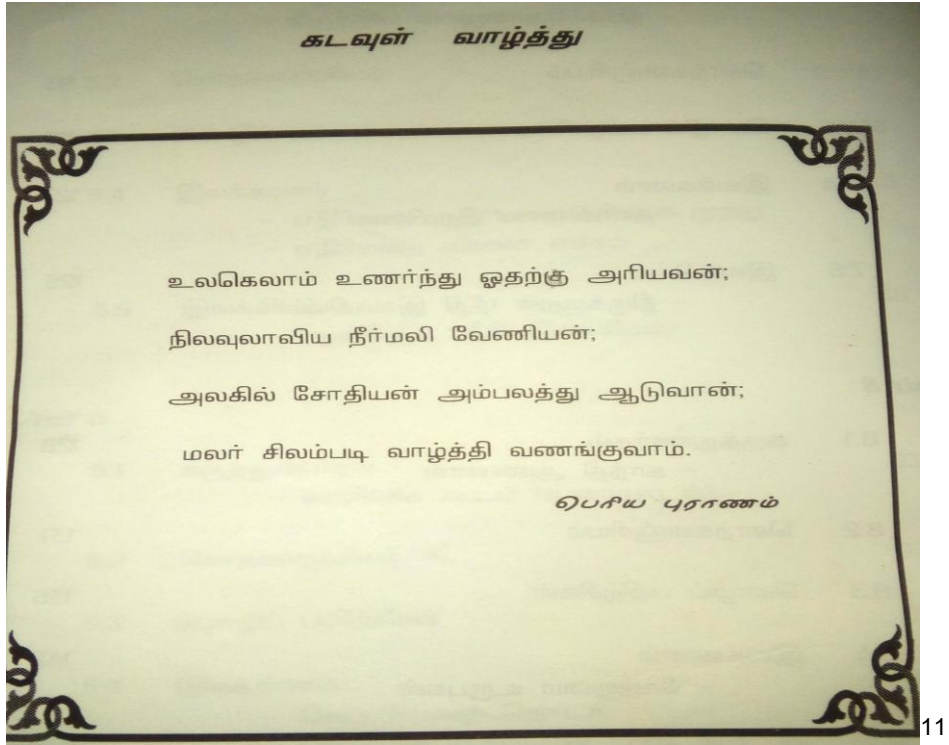 கடவுள் வாழ்த்து
உலகெலாம் உணர்ந்து ஓதற்கு அரியவன்;
நிலவுலாவிய நீர்மலி வேணியன்;
அலகில் சோதியன் அம்பலத்து ஆடுவான்;
மலர் சிலம்படி வாழ்த்தி வணங்குவாம்.
பெரிய புராணம்
11